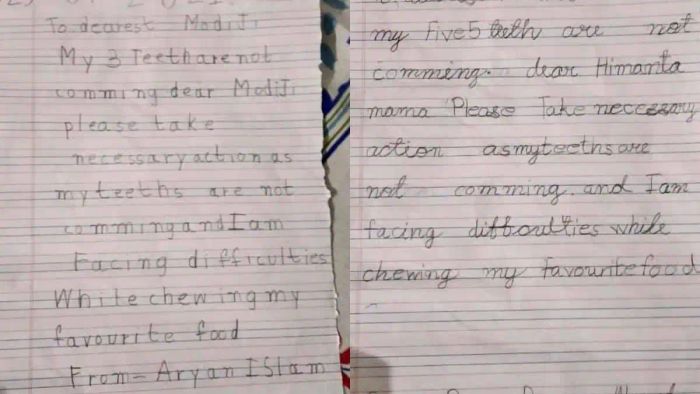 To dearest ModiJi
My 3 Teeth are not
comming dear ModiJi
please take
necessary action as
my teeths are not
comming and I am
Facing difficulties
While chewing my
favourite food
From- Aryan ISlam
my Five5 teeth are not
comming. dear Himanta
mama Please Take neccessary
action as my teeths are
not comming. and I am
facing difficulties while
chewing my favourite food